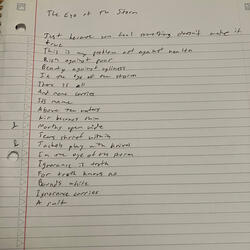 The Eye of The Storm
Just because you feel something doesn't make it
true
This is my problem not against
Rich against poor
Beauty against ugliness
In the eye of the storm
There is all
And none carries
Its name
Above the waters
Air becomes
Mouths open wide
Tears within
Jackals play with knives
I'm the eye of the storm
Ignorance is truth
For truth knows no
Bounds while
Ignorance carries
A